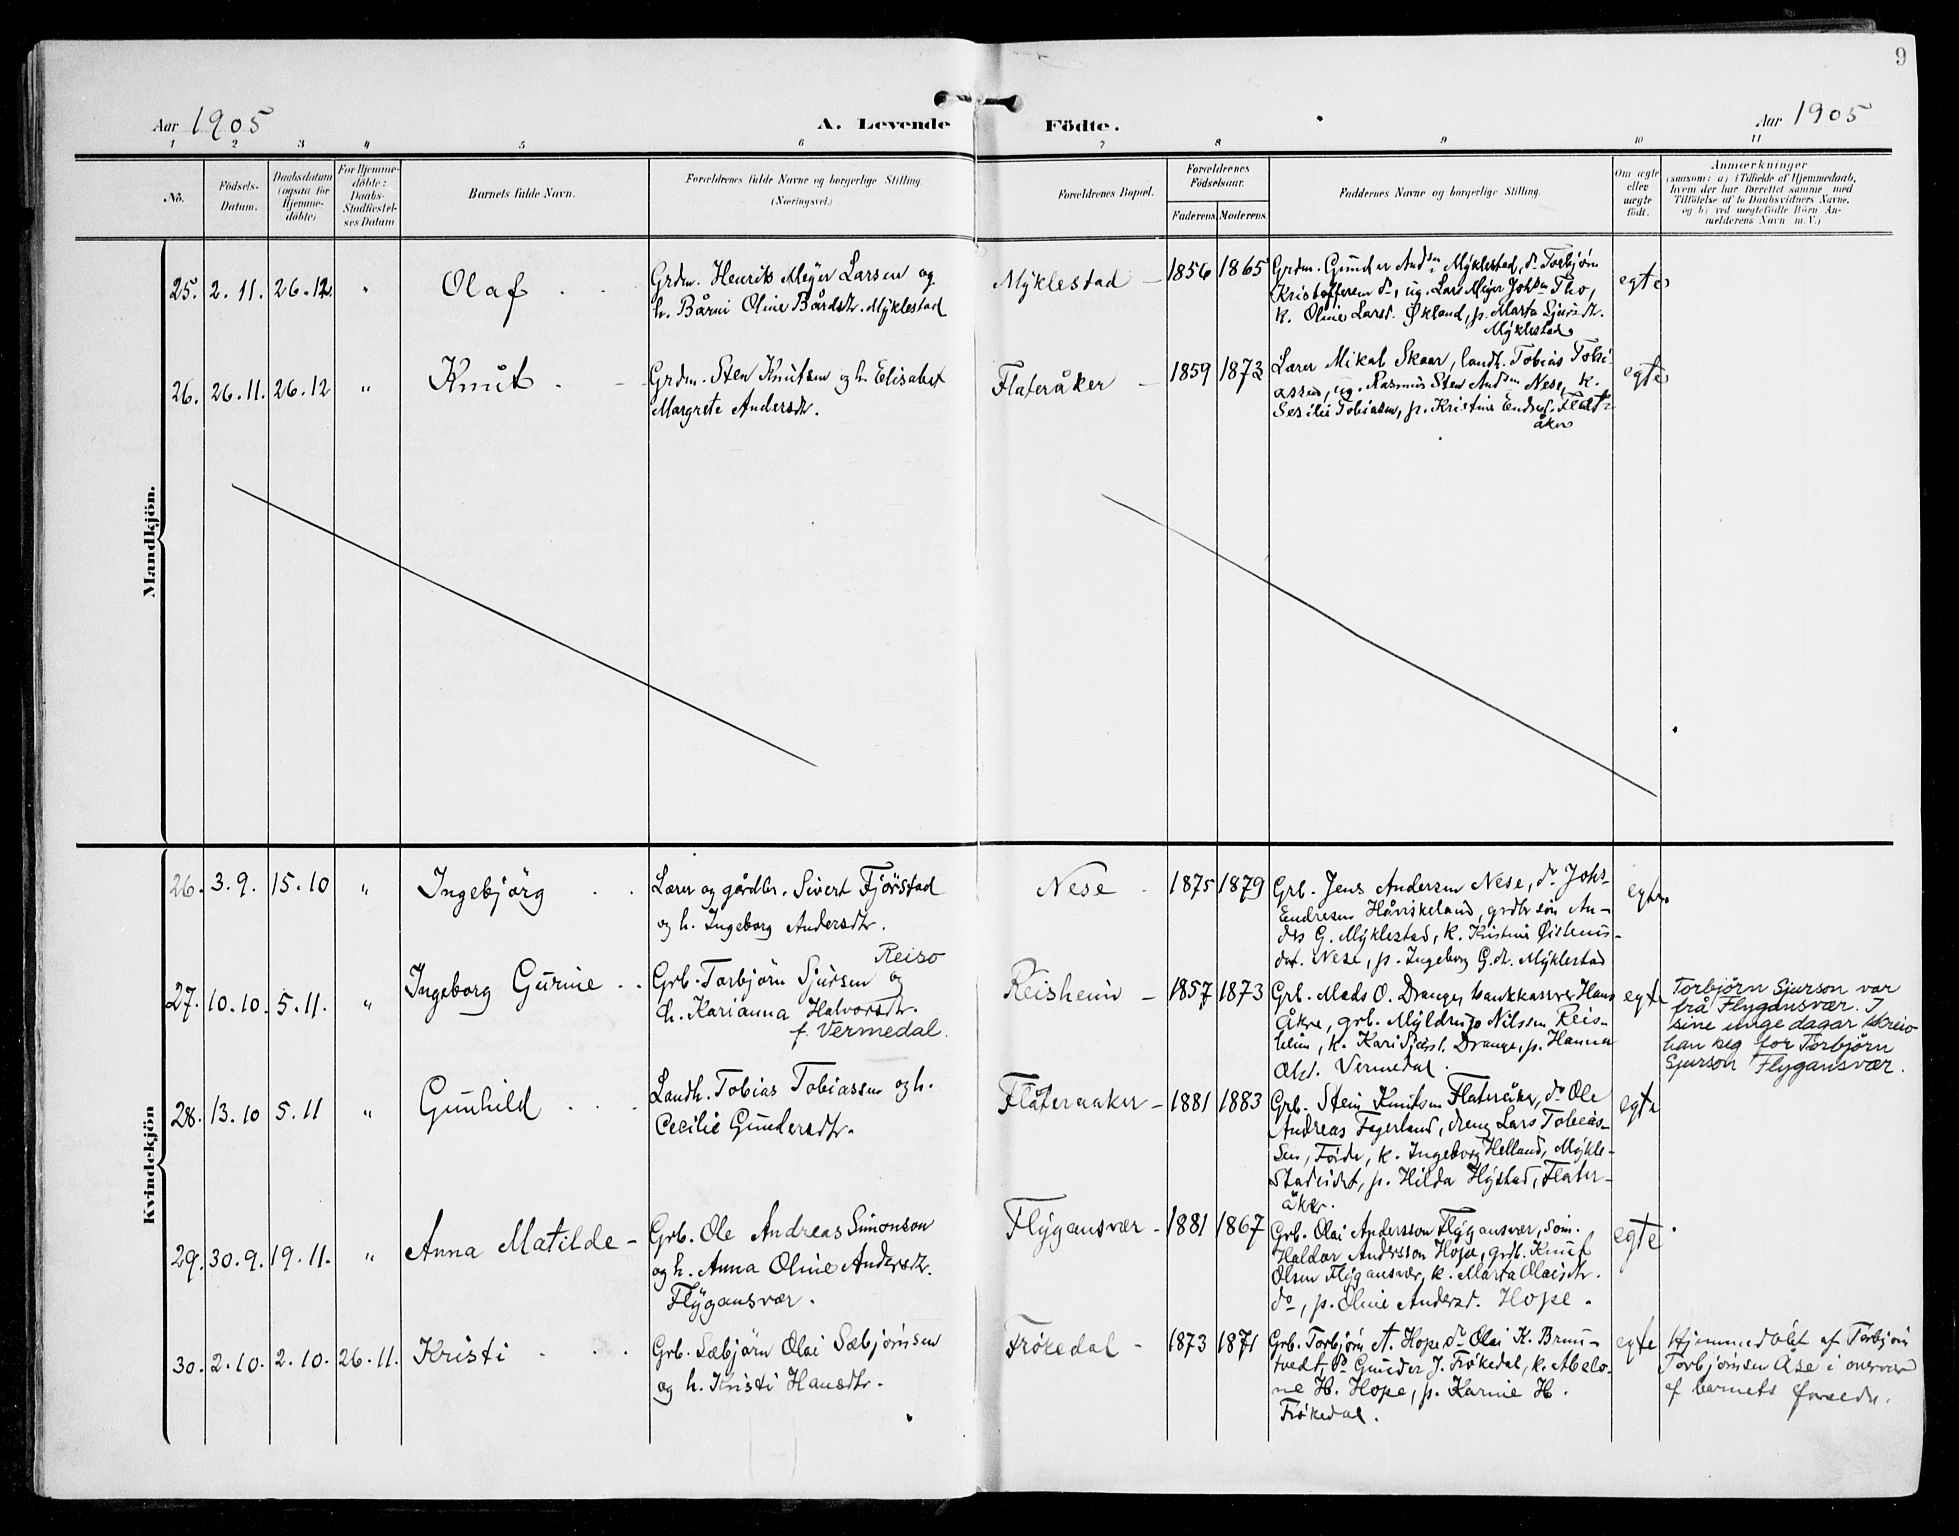 9
Aar 1905
A. Levende
Födte.
Aar 1905
1 2 3 4 5 6 7 8 9 10 11
No.
Födsels-
Datum.
Daabsdatum
(ogsaa for
Hjemme-
döbte)
For Hjemme-
döbte:
Daabs-
Stadfæstel-
ses Datum
Barnets fulde Navn.
Forældrenes fulde Navne og borgerlige Stilling.
(Næringsvei.)
Forældrenes Bopæl.
Forældrenes
Födselsaar.
Faderens.
Moderens.
Faddernes Navne og borgerlig Stilling.
Om ægte
eller
uægte
födt.
Anmærkninger
(saasom: a) i Tilfælde af Hjemmedaab,
hvem der har forrettet samme, med
Tilföielse af to Daabsvidners Navne,
og b) ved uægtefödte Börn An-
melderens Navn m. V.)
Mandkjön.
25. 2.11. 26.12. " Olaf
Grdm. Henrik Meyer Larsen og
h. Bårni Oline Bårdsdtr. Myklestad
Myklestad – 1856 1865
Grdm. Gunder Andsen Myklestad, do Torbjørn
Kristoffersen do, ug. Lars Meyer Johsen Tho,
k. Oline Larsd. Økland, p. Marta Sjursdtr.
Myklestad
egte
26. 26.11. 26.12 " Knut
Grdm. Sten Knutsen og h. Elisabet
Margrete Andersdtr.
Flateråker – 1859 1873
Lærer Mikal Skaar, landh. Tobias Tobi-
assen, ug. Rasmus Sten Andsen Nese, k.
Sesilie Tobiasen, p. Kristine Endresd. Flater-
åker
egte
Kvindekjön
26. 3.9. 15.10 " Ingebjörg
Lærer og gårdbr. Sivert Fjørstad
og h. Ingeborg Andersdtr.
Nese 1875 1879
Grb. Jens Andersen Nese, do Johs
Endresen Håviskeland, grdbr søn An-
ders G. Myklestad, k. Kristine
Nese, p. Ingeborg G.dtr. Myklestad
egte
27. 10.10. 5.11. " Ingeborg Gurine
Reiso
Grb. Torbjørn Sjursen og
h. Karianna Halvorsdtr.
f. Vermedal.
Reisheim – 1857 1873
Grb. Mads O. Drange, bankkasserer Hans
Åkre, grb. Myldrup Nilssen Reis-
heim, k. Kari Drange, p. Hanna
Vermedal.
egte
Torbjørn Sjurson var
frå Flygansvær. I
sine unge dagar skreiv
han seg for Torbjørn
Sjurson Flygansvær.
28. 13.10 5.11 " Gunhild
Landh. Tobias Tobiassen og h.
Cecilie Gundersdtr.
Flateraaker – 1881 1883
Grb. Stein Knutsen Flateråker, do Ole
Andreas Fagerland, dreng Lars Tobias-
sen, Førde, k. Ingeborg Helland, Mykle-
stadeidet, p. Hilda Høystad, Flater-
åker.
egte
29. 30.9. 19.11. " Anna Matilde –
Grb. Ole Andreas Simonson
og h. Anna Oline Andersdtr.
Flygansvær.
Flygansvær – 1881 1867
Grb. Olai Andersson Flygansvær, søn.
Haldor Andersson Hope, grdb. Knut
Olsen Flygansvær, k. Marta Olaisdtr.
do, p. Oline Andersd. Hope.
egte
30. 2.10. 2.10. 26.11. Kristi
Grb. Sæbjørn Olai Sæbjørnsen
og h. Kristi Hansdtr.
Frøkedal – 1873 1871
Grb. Torbjørn A. Hope, do Olai K. Brun-
tvedt, do Gunder J. Frøkedal, k. Abelo-
ne H. Hope, p. Karine H.
Frøkedal.
egte
Hjemmedöbt af Torbjørn
Torbjørnsen Åse i overvær
af barnets forældre.